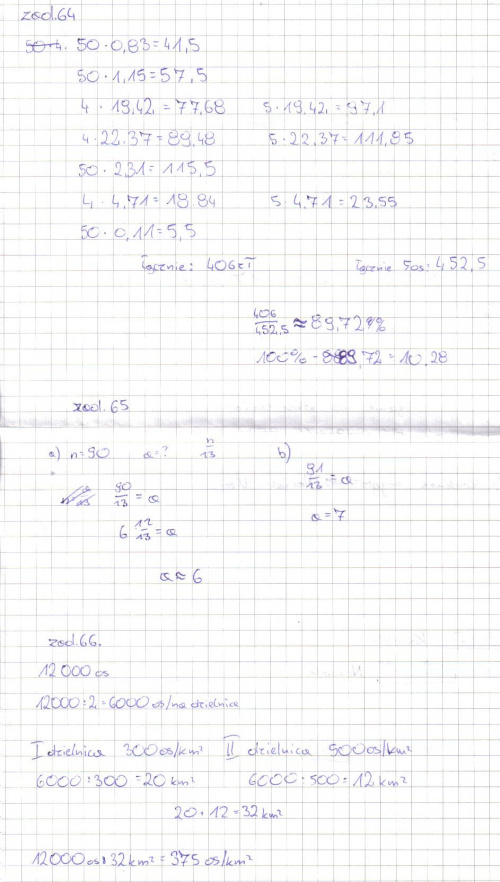 zad.64
50·4. 50·0,83=41,5
50·1,15=57,5
4·19,42=77,68 5·19,42=97,1
4·22.37=89,48 5·22,37=111,85
50·2,31=115,5
4·4,71=18.84 5·4.71=23.55
50·0,11=5,5
Łącznie: 406zł Łącznie 5os: 452,5
406/452,5 ≈ 89,72%
100% - 89,72=10,28
zad.65
a) n=90 a=? n/13 b) 91/13=a
90/13=a a=7
6 12/13=a
a≈6
zad.66.
12000os
12000:2=6000os/na dzielnicę
I dzielnica 300os/km² II dzielnica 500os/km²
6000:300=20km² 6000:500=12km²
20+12=32km²
12000os:32km²=375os/km²